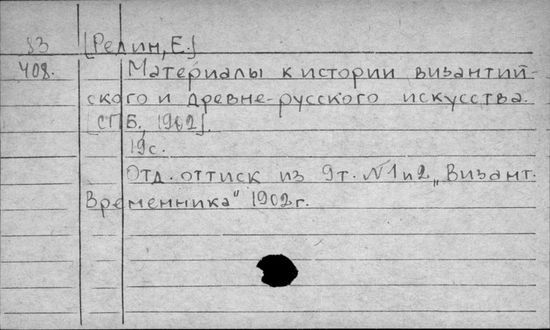 83 [Редин, Е.]
408. Материалы к истории византий-
ского и древне-русского искусства.
[СПБ, 1902].
19с.
Отд. оттиск из 9т. N1и2 „Визант.
Временника" 1902г.